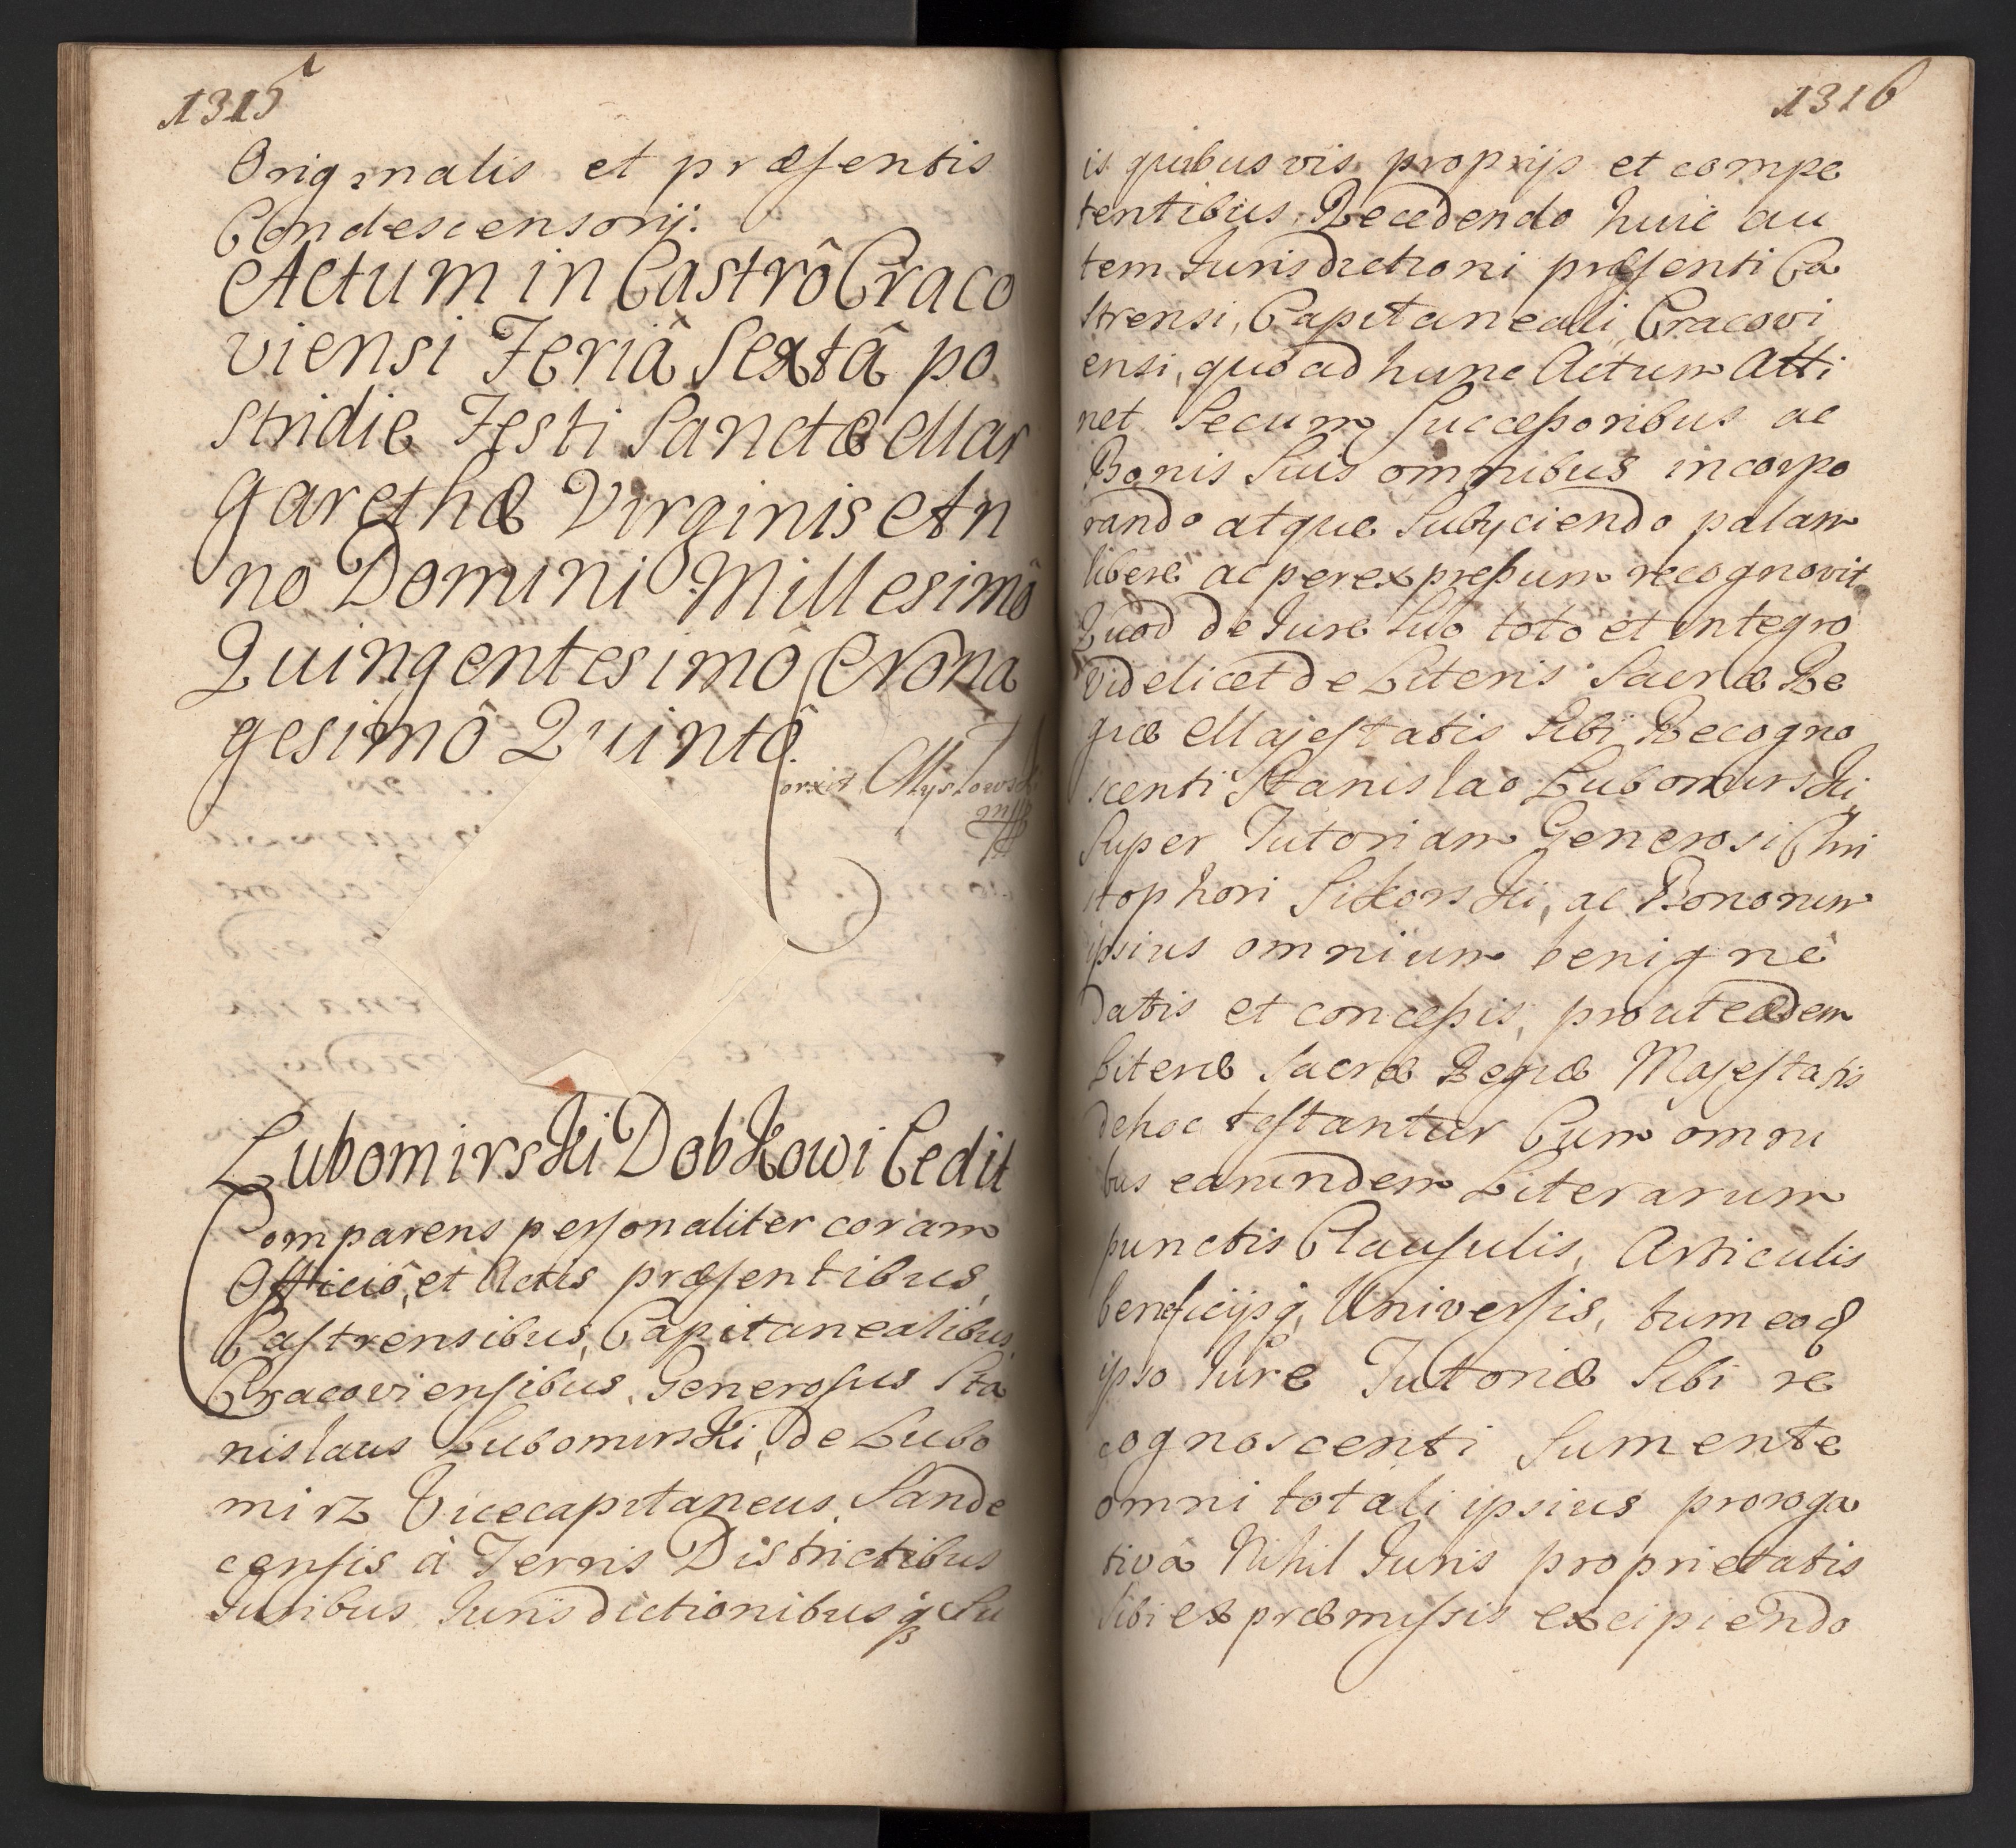 1315
Originalis et præsentis
Condescensorij.
Actum in Castrô Craco
viensi Feriâ Sextâ po
stridie Festi Sanctæ Mar
garethæ Virginis An
no Domini Millesimô
Quingentesimô Nona
gesimô Quintô.
Lubomirski Dobkowi Cedit
Comparens personaliter coram
Officiô, et Actis præsentibus,
Castrensibus, Capitanealibus,
Cracoviensibus, Generosus Sta
nislaus Lubomirski, de Lubo
mirz Vicecapitaneus Sande
censis à Terris Districtibus
Iuribus Iurisdictionibusq Su
1316
is quibusvis proprijs et compe
tentibus, Recedendo huic au
tem Iurisdictioni præsenti Ca
strensi, Capitaneali, Cracovi
ensi, quo ad hunc Actum Atti
net Secum Successoribus ac
Bonis Suis omnibus incorpo
rando atque Subyciendo palam
libere ac per expressum recognovit
Quod de Iure Suo toto et integro
Videlicet de Literis Sacræ Re
giæ Majestatis Sibi Recogno
scenti Stanislao Lubomirski
Super Tutoriam Generosi Chri
stophori Sikorski, ac Bonorum
ipsius omnium benignè
datis et concessis, prout eædem
Literæ Sacræ Regiæ Majestatis
de hoc testantur Cum omni
bus earundem Literarum
punctis Clausulis, Articulis
beneficijsq, Universis, tum eoq
ipso Iure Tutoriæ Sibi re
cognoscenti Sumente
omni totali ipsius proroga
tivâ Nihil Iuris proprietatis
Sibi ex præmissis excipiendo